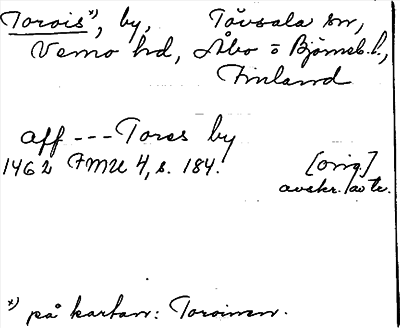 Torois*), by, Tövsala sn,
Vemo hd, Åbo o Björneb. l.,
Finland
aff --- Tores by
1462 FMU 4, s. 184. [orig.]
avskr. av tr.
*) på kartan: Toroinen.